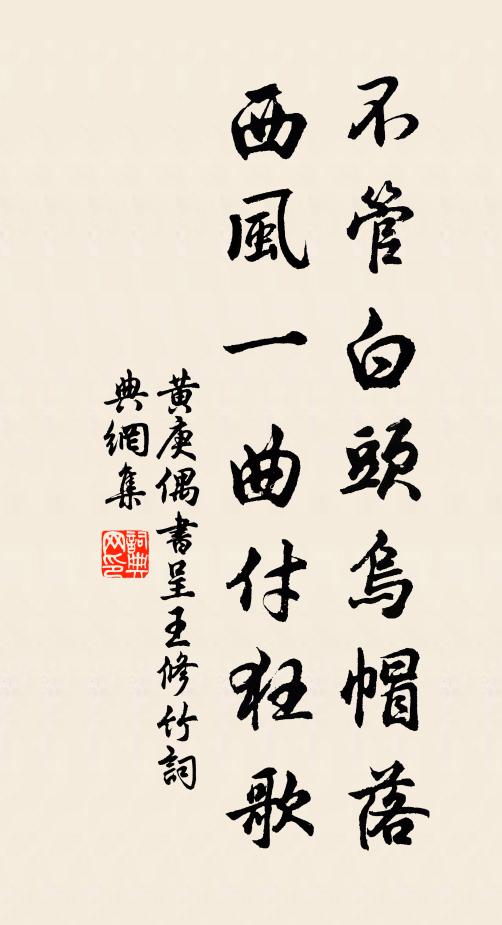 不管白頭烏帽落
西風一曲付狂歌
黄庚偶書呈王修竹詞
典網集
詞典
网印